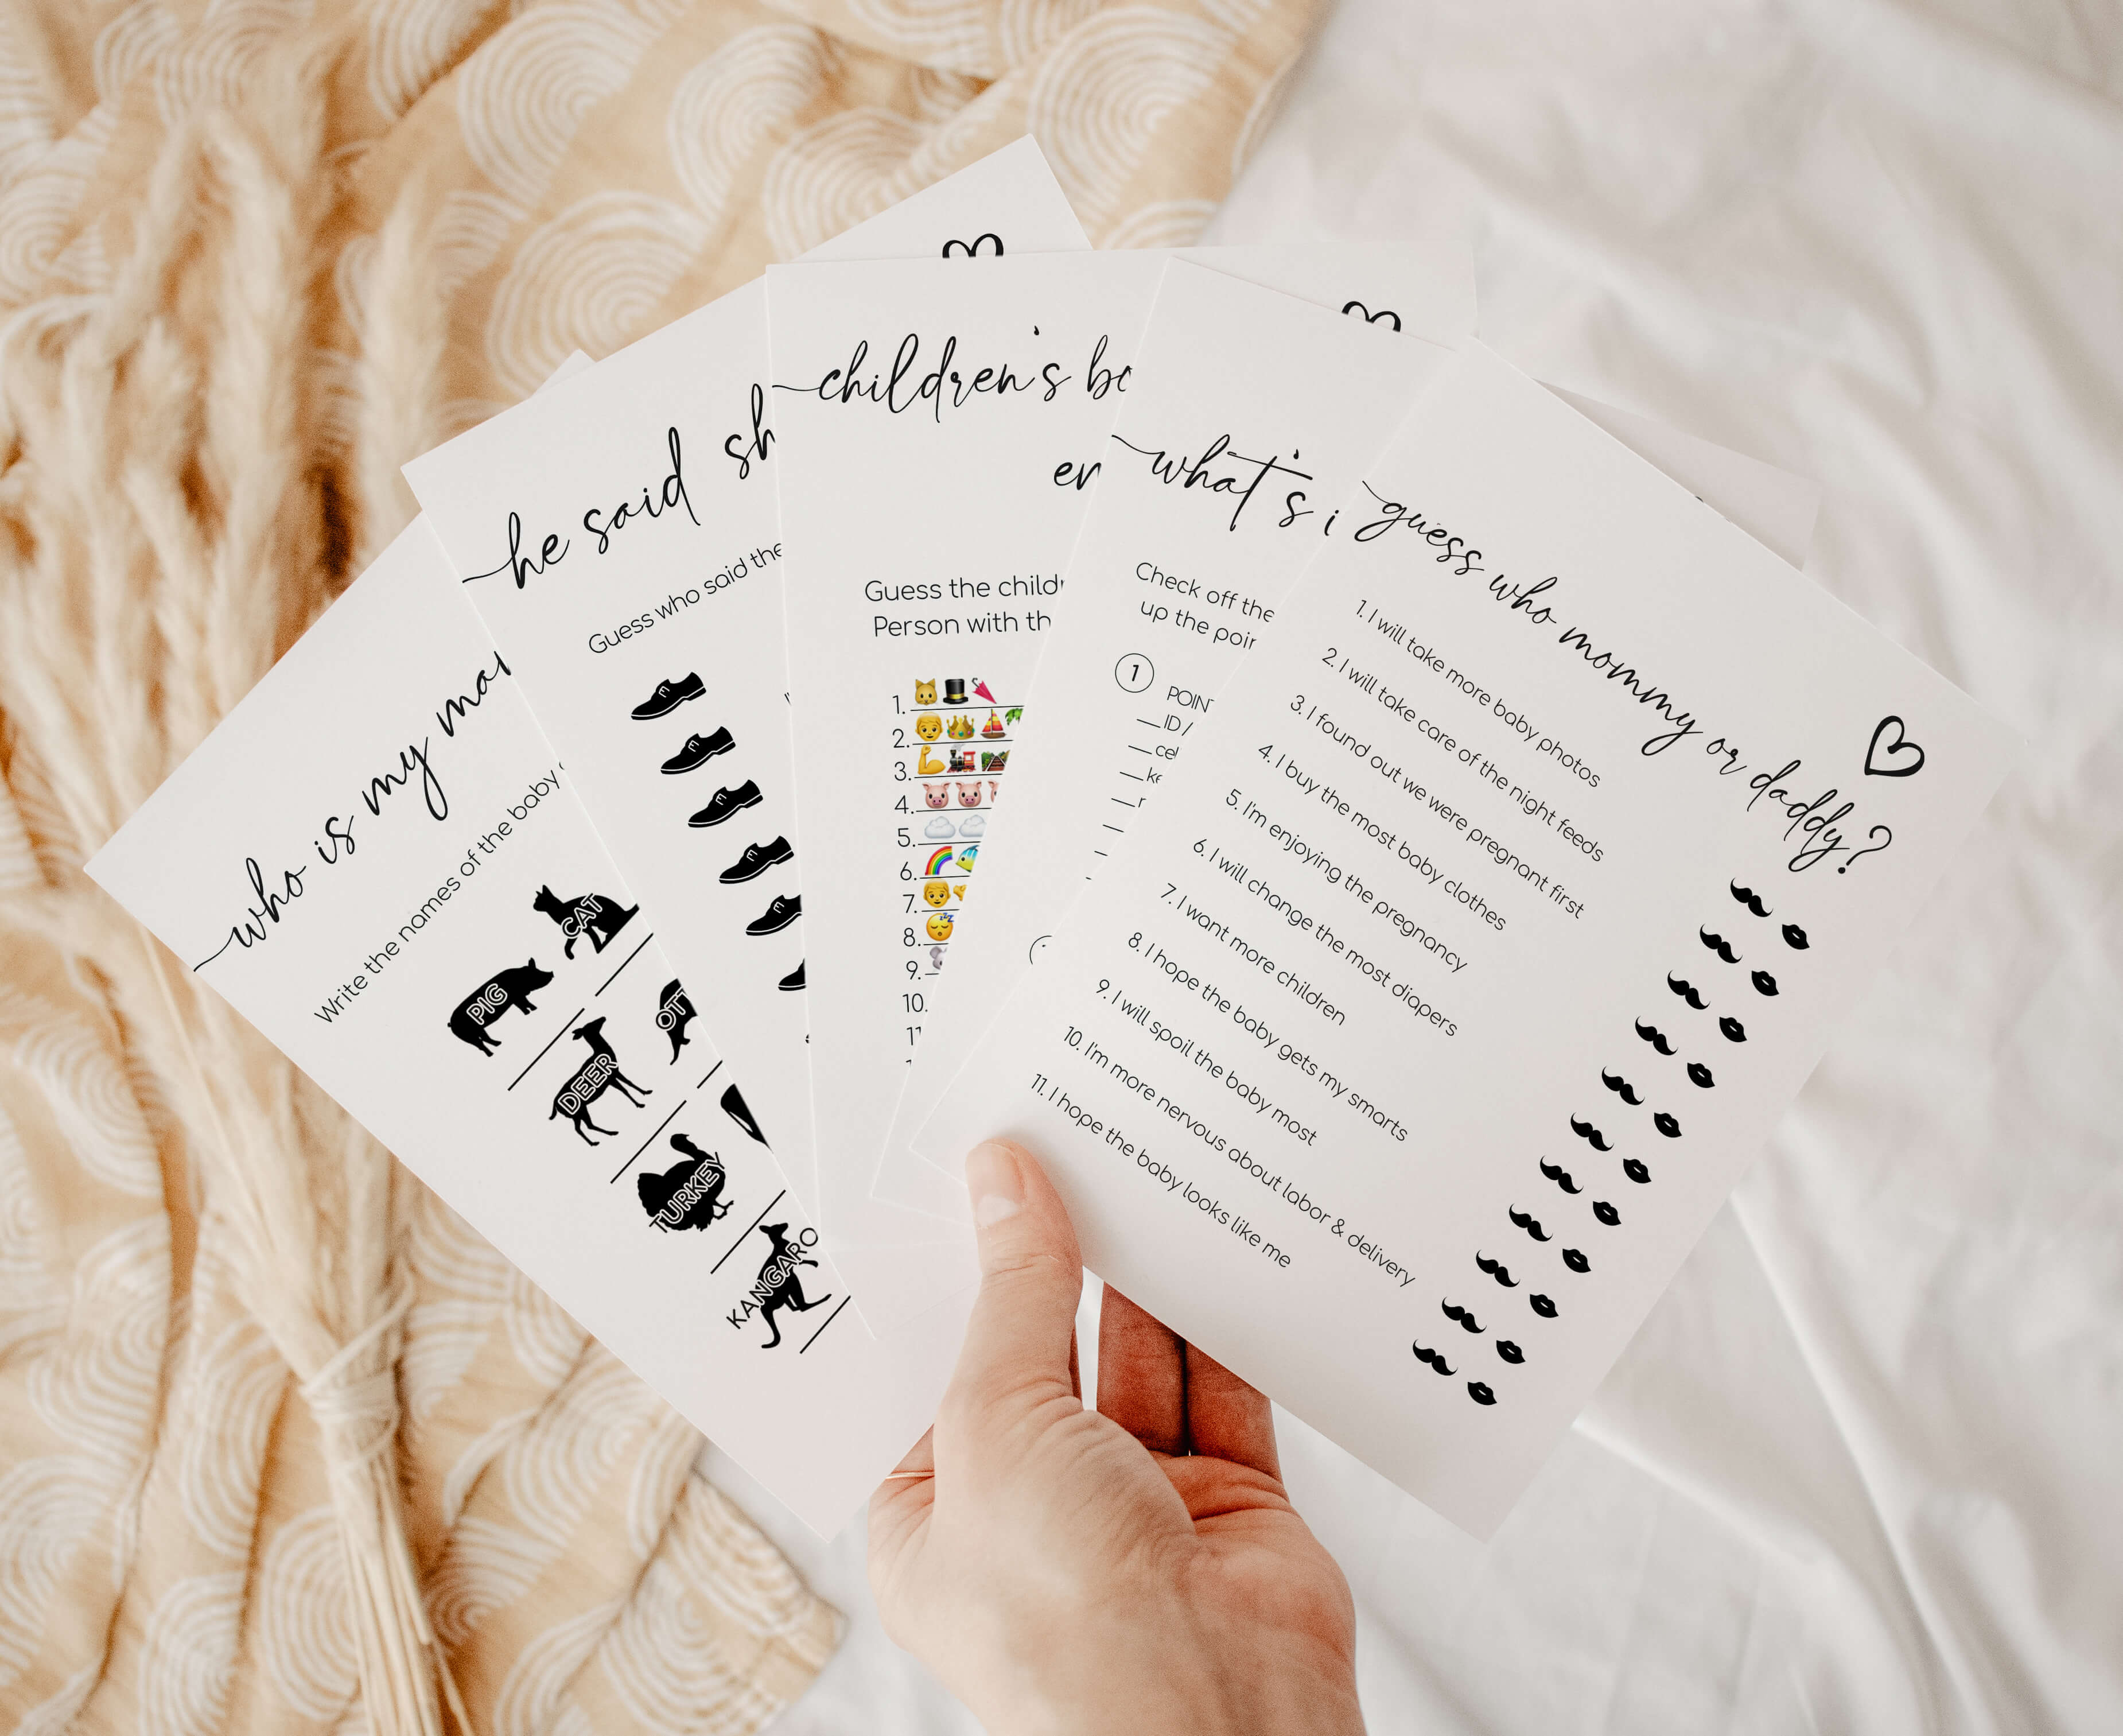 who is my
Write the names of the baby
CAT
PIG
DEER
TURKEY
KANGARO
he said
Guess who said the
children's
Guess the
Person with
1.
2.
3.
4.
5.
6.
7.
8.
9.
10.
what's
Check off the
up the
1
ID /
guess who mommy or daddy?
1. I will take more baby photos
2. I will take care of the night feeds
3. I found out we were pregnant first
4. I buy the most baby clothes
5. I'm enjoying the pregnancy
6. I will change the most diapers
7. I want more children
8. I hope the baby gets my smarts
9. I will spoil the baby most
10. I'm more nervous about labor & delivery
11. I hope the baby looks like me